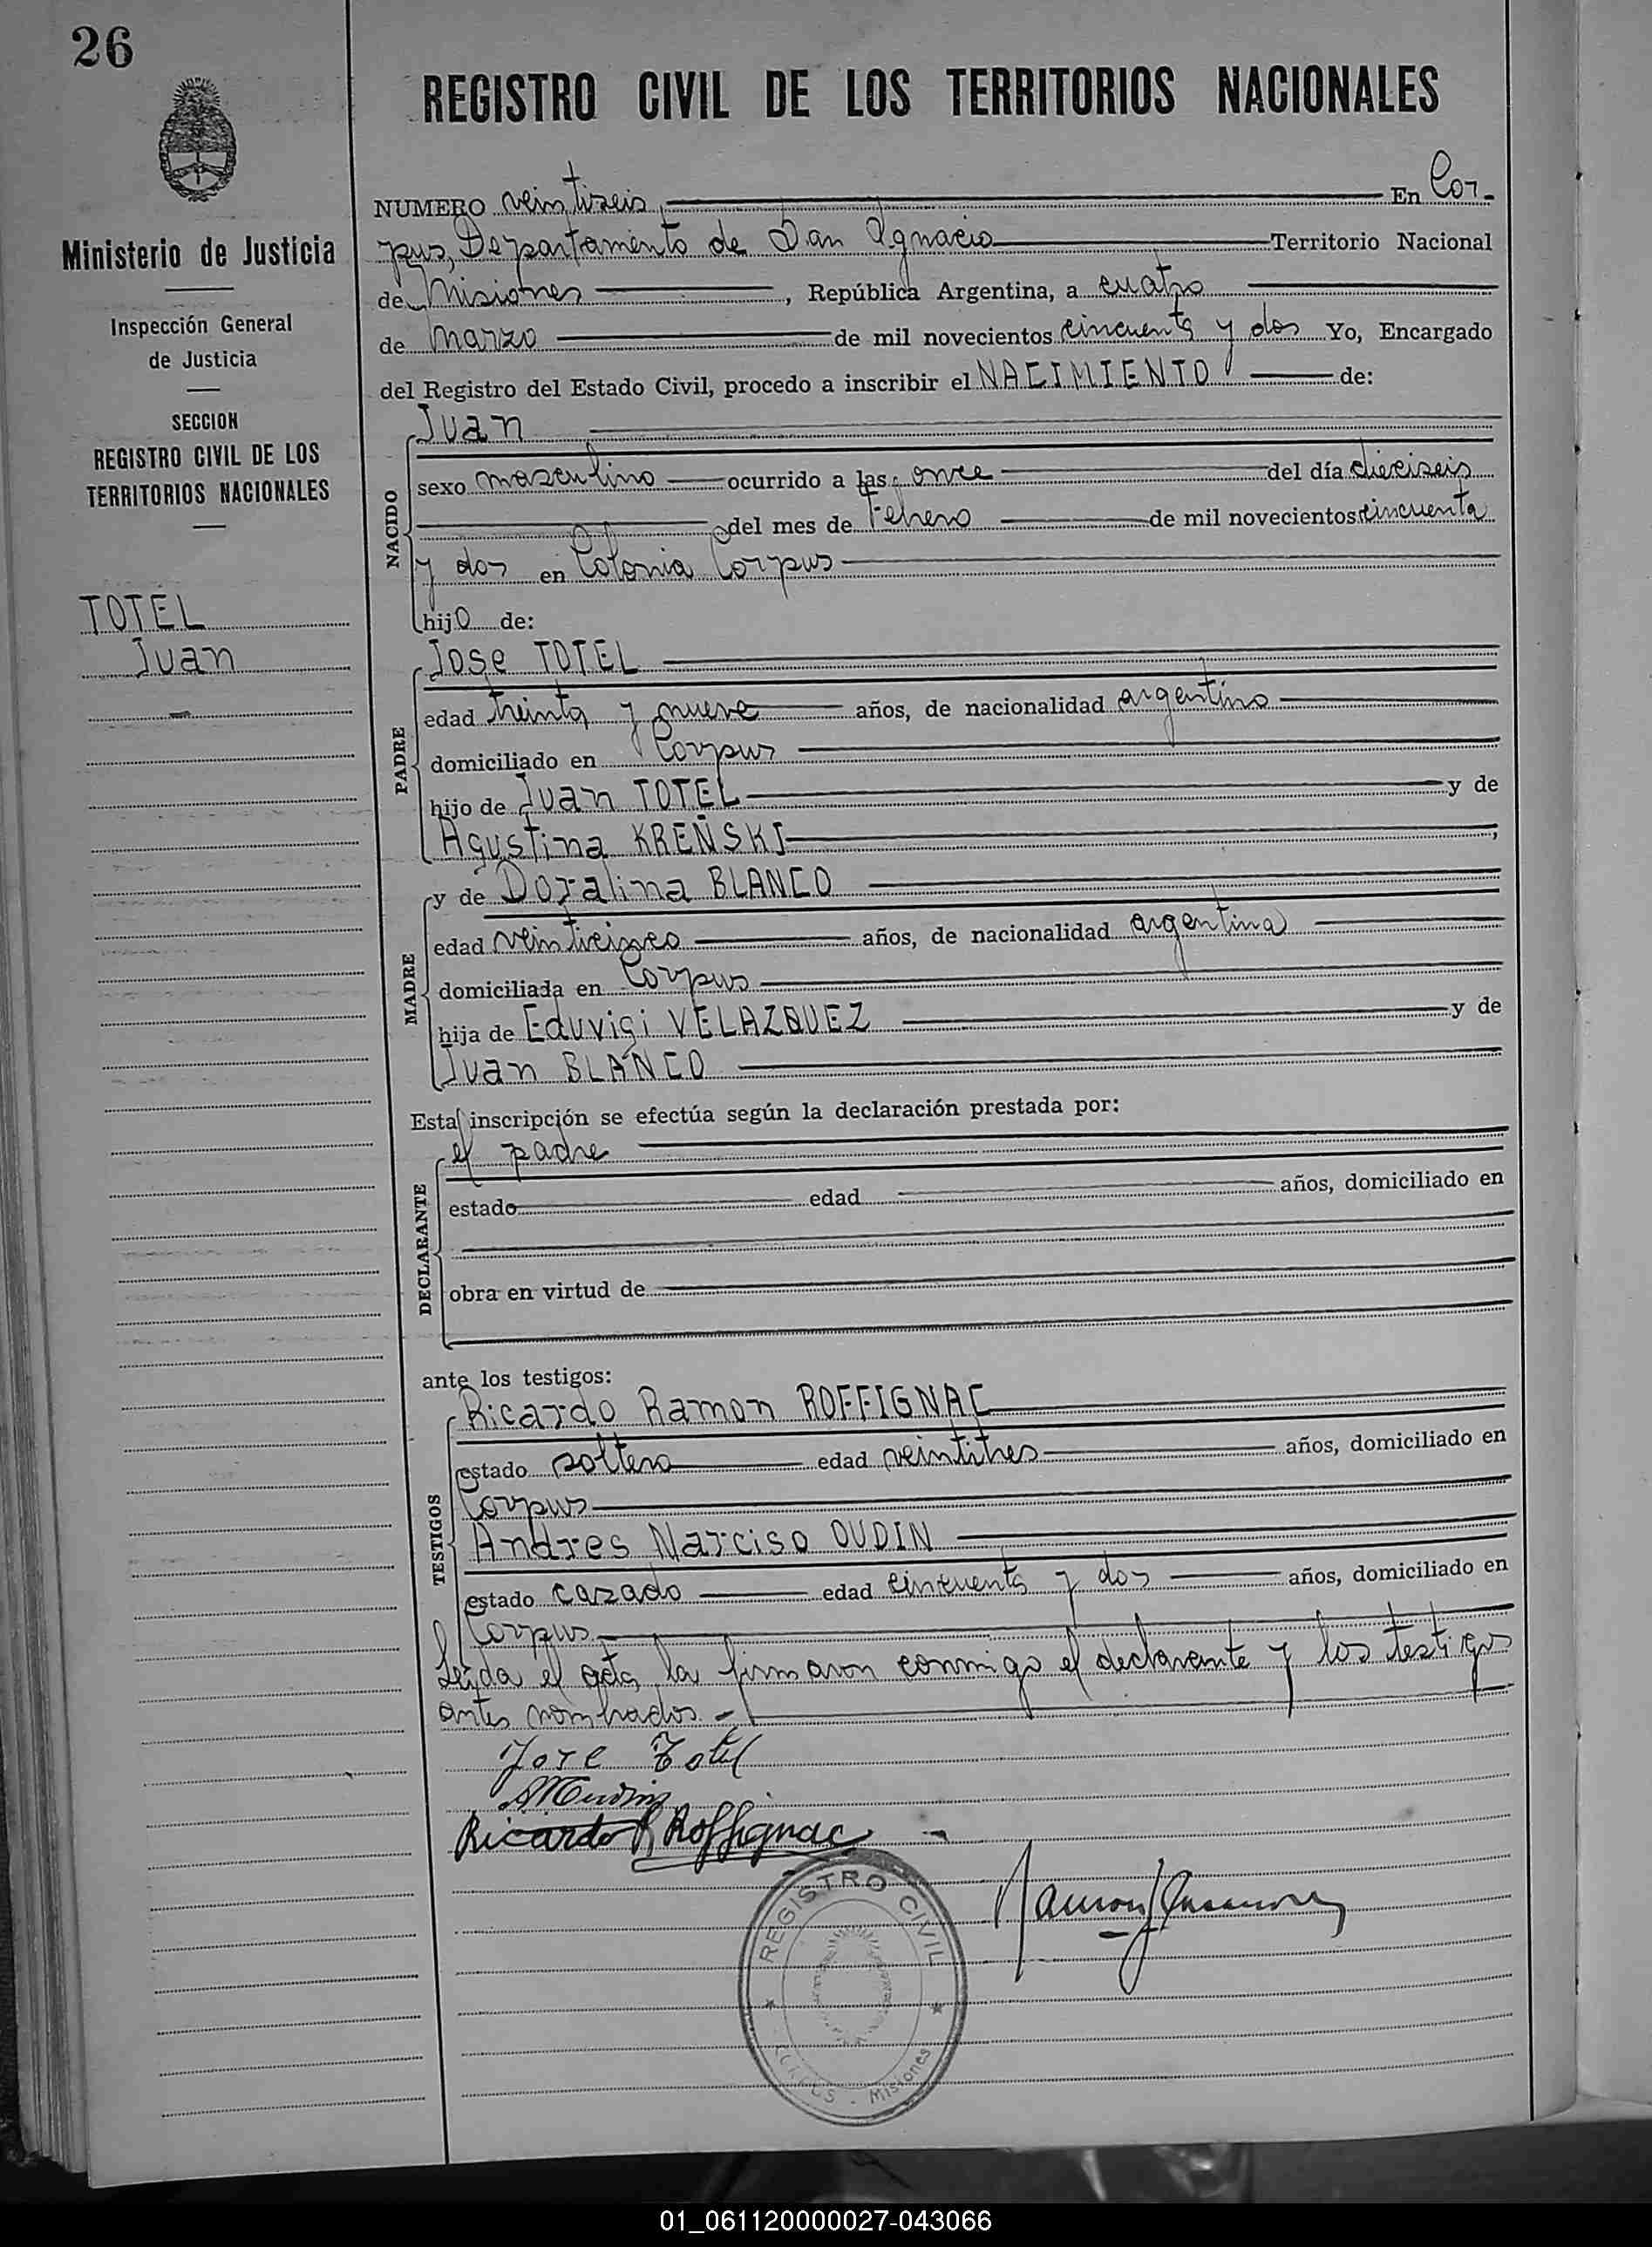 26
REGISTRO CIVIL DE LOS TERRITORIOS NACIONALES
Ministerio de Justicia
Inspección General
de Justicia
SECCION
REGISTRO CIVIL DE LOS
TERRITORIOS NACIONALES
TOTEL
Juan
NUMERO veintiseis En Cor-
pus, Departamento de San Ignacio Territorio Nacional
de Misiones, República Argentina, a cuatro
de Marzo de mil novecientos cincuenta y dos Yo, Encargado
del Registro del Estado Civil, procedo a inscribir el NACIMIENTO de:
NACIDO
Juan
sexo masculino ocurrido a las once del día dieciseis
del mes de Febrero de mil novecientos cincuenta
y dos en Colonia Corpus
hijo de:
PADRE
Jose TOTEL
edad treinta y nueve años, de nacionalidad argentino
domiciliado en Corpus
hijo de Juan TOTEL y de
Agustina KREÑSKI,
MADRE
y de Doralina BLANCO
edad veinticinco años, de nacionalidad argentina
domiciliada en Corpus
hija de Eduvigi VELAZQUEZ y de
Juan BLANCO
Esta inscripción se efectúa según la declaración prestada por:
DECLARANTE
el padre
estado edad años, domiciliado en
obra en virtud de
ante los testigos:
TESTIGOS
Ricardo Ramon ROFFIGNAC
estado soltero edad veintitres años, domiciliado en
Corpus
Andres Narciso OUDIN
estado casado edad cincuenta y dos años, domiciliado en
Corpus
Leida el acta, la firmaron conmigo el declarante y los testigos
antes nombrados.-
Jose Totel
Ricardo R Roffignac
REGISTRO CIVIL
Misiones
01_061120000027-043066